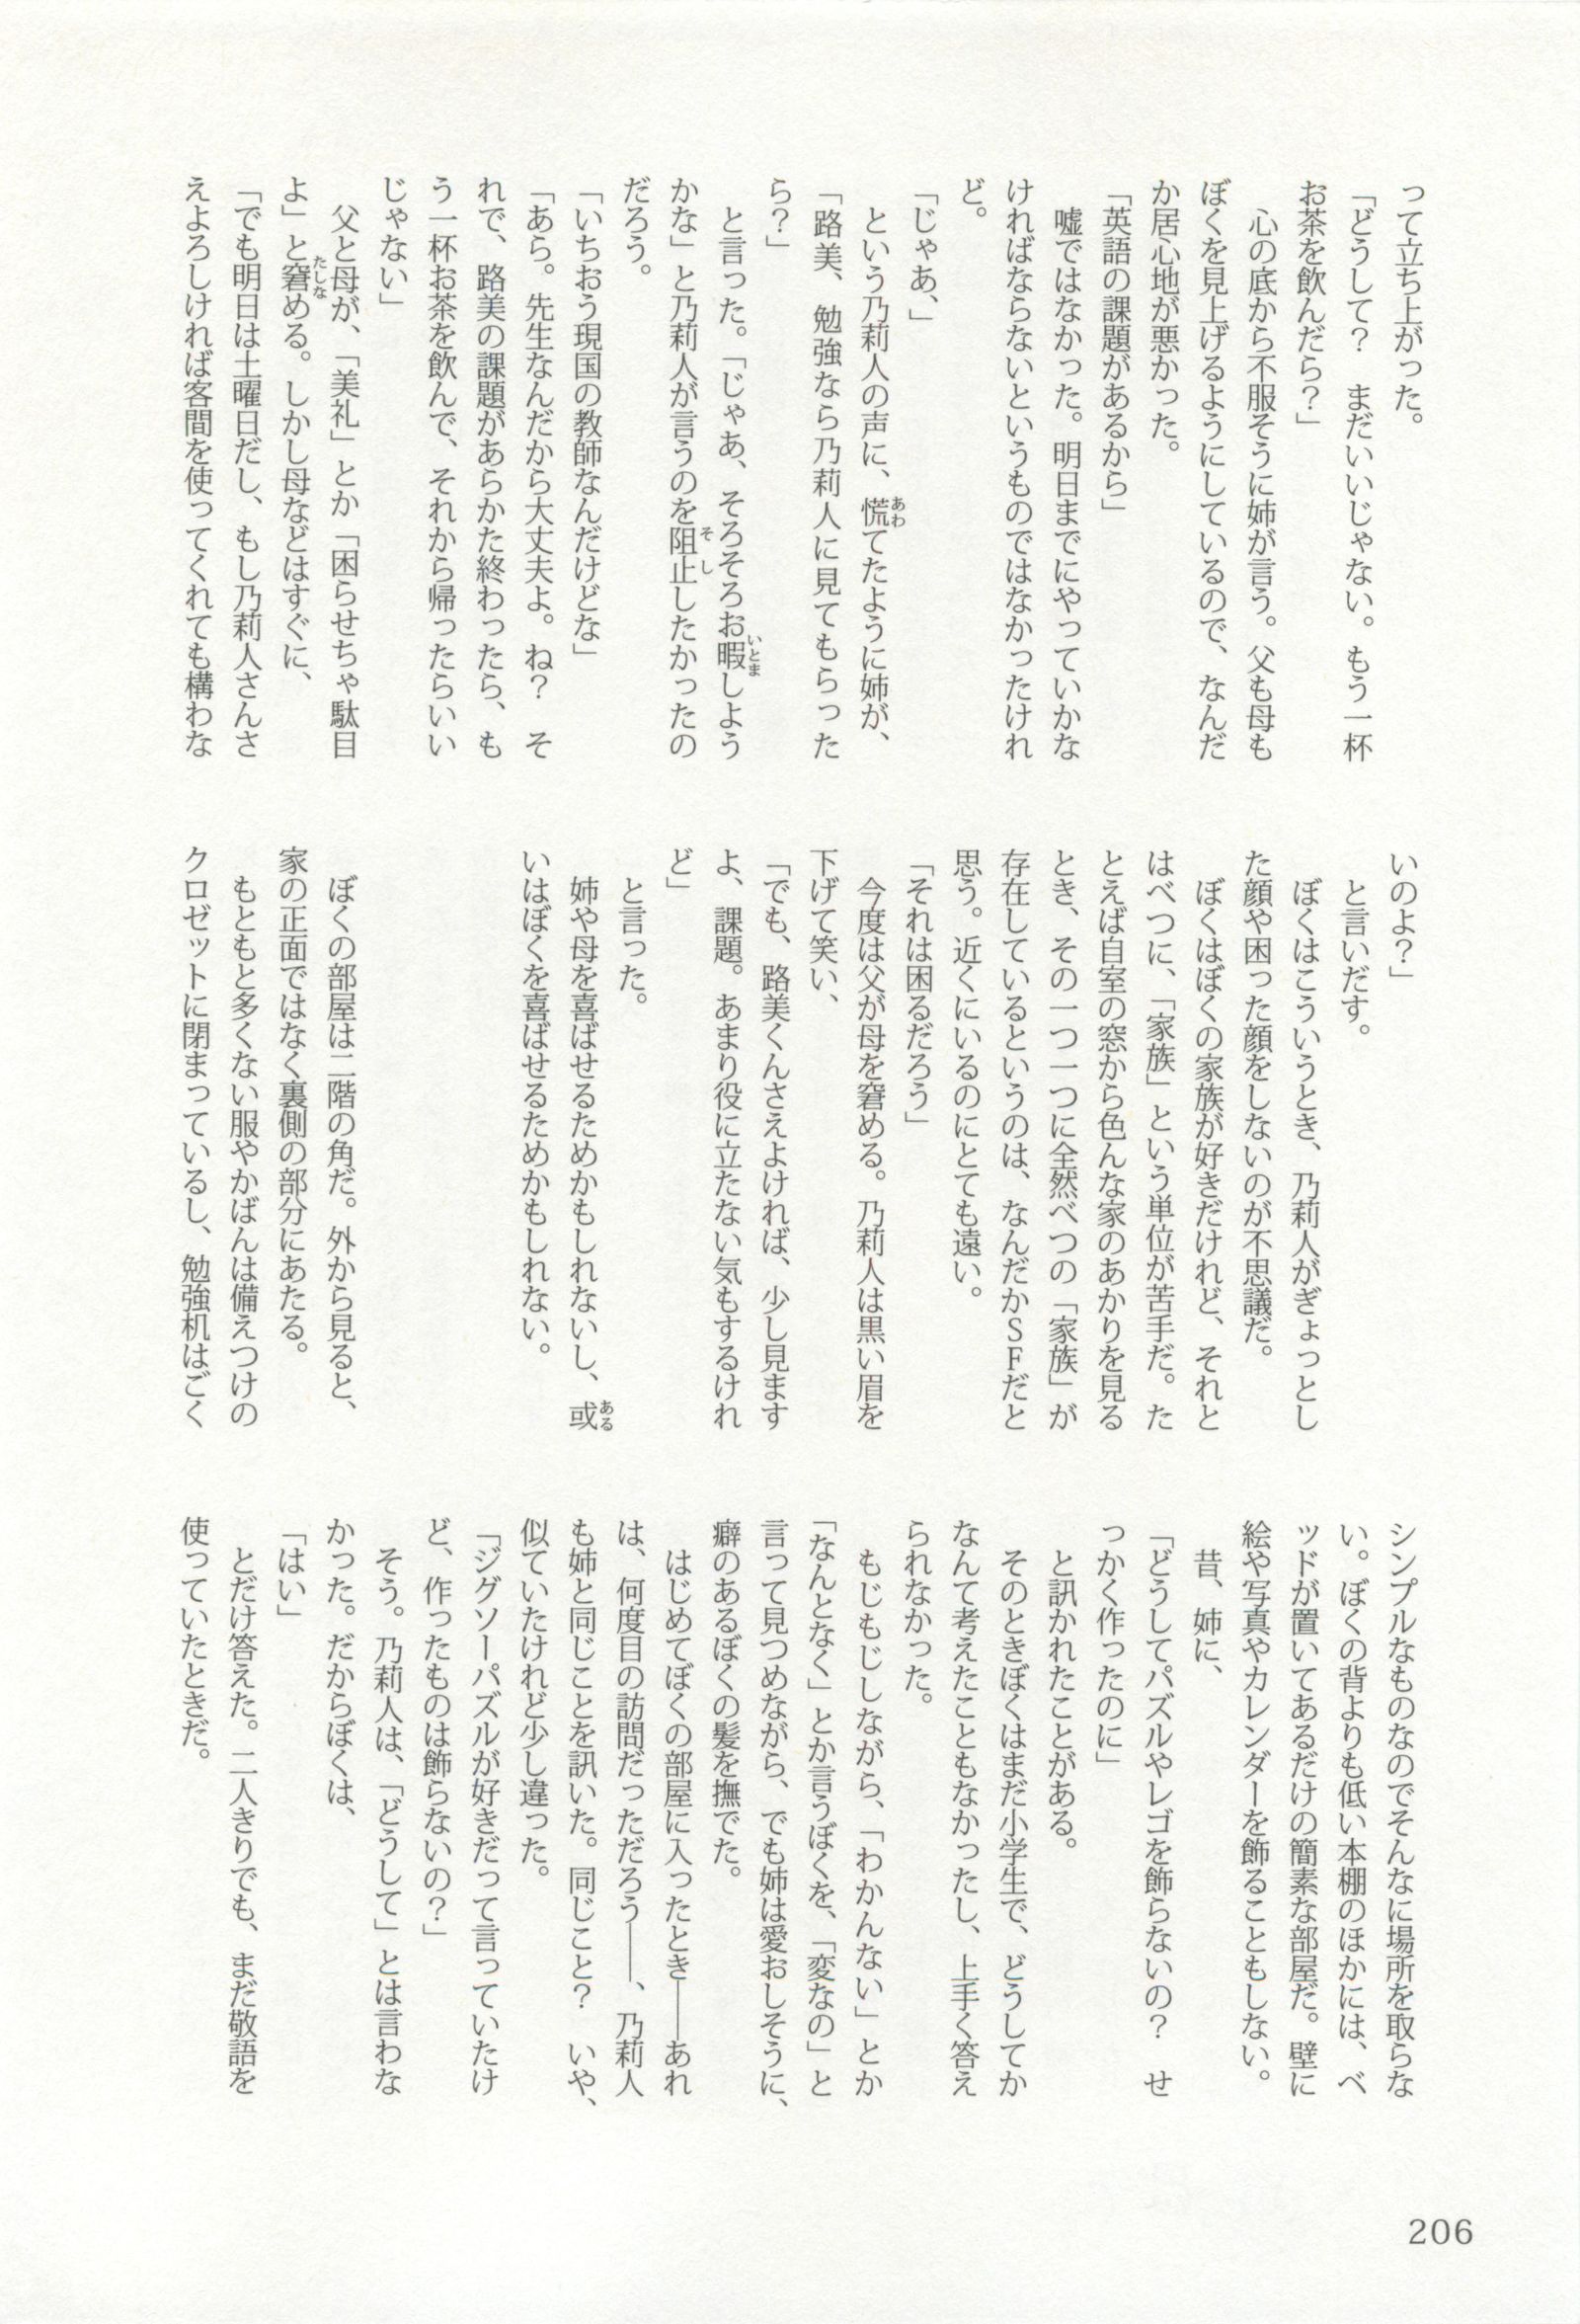 って立ち上がった。
「どうして？　まだいいじゃない。もう一杯
お茶を飲んだら？」
　心の底から不服そうに姉が言う。父も母も
ぼくを見上げるようにしているので、なんだ
か居心地が悪かった。
「英語の課題があるから」
　嘘ではなかった。明日までにやっていかな
ければならないというものではなかったけれ
ど。
「じゃあ、」
　という乃莉人の声に、慌てたように姉が、
「路美、勉強なら乃莉人に見てもらった
ら？」
　と言った。「じゃあ、そろそろお暇しよう
かな」と乃莉人が言うのを阻止したかったの
だろう。
「いちおう現国の教師なんだけどな」
「あら。先生なんだから大丈夫よ。ね？　そ
れで、路美の課題があらかた終わったら、も
う一杯お茶を飲んで、それから帰ったらいい
じゃない」
　父と母が、「美礼」とか「困らせちゃ駄目
よ」と窘める。しかし母などはすぐに、
「でも明日は土曜日だし、もし乃莉人さんさ
えよろしければ客間を使ってくれても構わな
いのよ？」
　と言いだす。
　ぼくはこういうとき、乃莉人がぎょっとし
た顔や困った顔をしないのが不思議だ。
　ぼくはぼくの家族が好きだけれど、それと
はべつに、「家族」という単位が苦手だ。た
とえば自室の窓から色んな家のあかりを見る
とき、その一つ一つに全然べつの「家族」が
存在しているというのは、なんだかＳＦだと
思う。近くにいるのにとても遠い。
「それは困るだろう」
　今度は父が母を窘める。乃莉人は黒い眉を
下げて笑い、
「でも、路美くんさえよければ、少し見ます
よ、課題。あまり役に立たない気もするけれ
ど」
　と言った。
　姉や母を喜ばせるためかもしれないし、或
いはぼくを喜ばせるためかもしれない。
　ぼくの部屋は二階の角だ。外から見ると、
家の正面ではなく裏側の部分にあたる。
　もともと多くない服やかばんは備えつけの
クロゼットに閉まっているし、勉強机はごく
シンプルなものなのでそんなに場所を取らな
い。ぼくの背よりも低い本棚のほかには、ベ
ッドが置いてあるだけの簡素な部屋だ。壁に
絵や写真やカレンダーを飾ることもしない。
　昔、姉に、
「どうしてパズルやレゴを飾らないの？　せ
っかく作ったのに」
　と訊かれたことがある。
　そのときぼくはまだ小学生で、どうしてか
なんて考えたこともなかったし、上手く答え
られなかった。
　もじもじしながら、「わかんない」とか
「なんとなく」とか言うぼくを、「変なの」と
言って見つめながら、でも姉は愛おしそうに、
癖のあるぼくの髪を撫でた。
　はじめてぼくの部屋に入ったとき――あれ
は、何度目の訪問だっただろう――、乃莉人
も姉と同じことを訊いた。同じこと？　いや、
似ていたけれど少し違った。
「ジグソーパズルが好きだって言っていたけ
ど、作ったものは飾らないの？」
　そう。乃莉人は、「どうして」とは言わな
かった。だからぼくは、
「はい」
　とだけ答えた。二人きりでも、まだ敬語を
使っていたときだ。
206